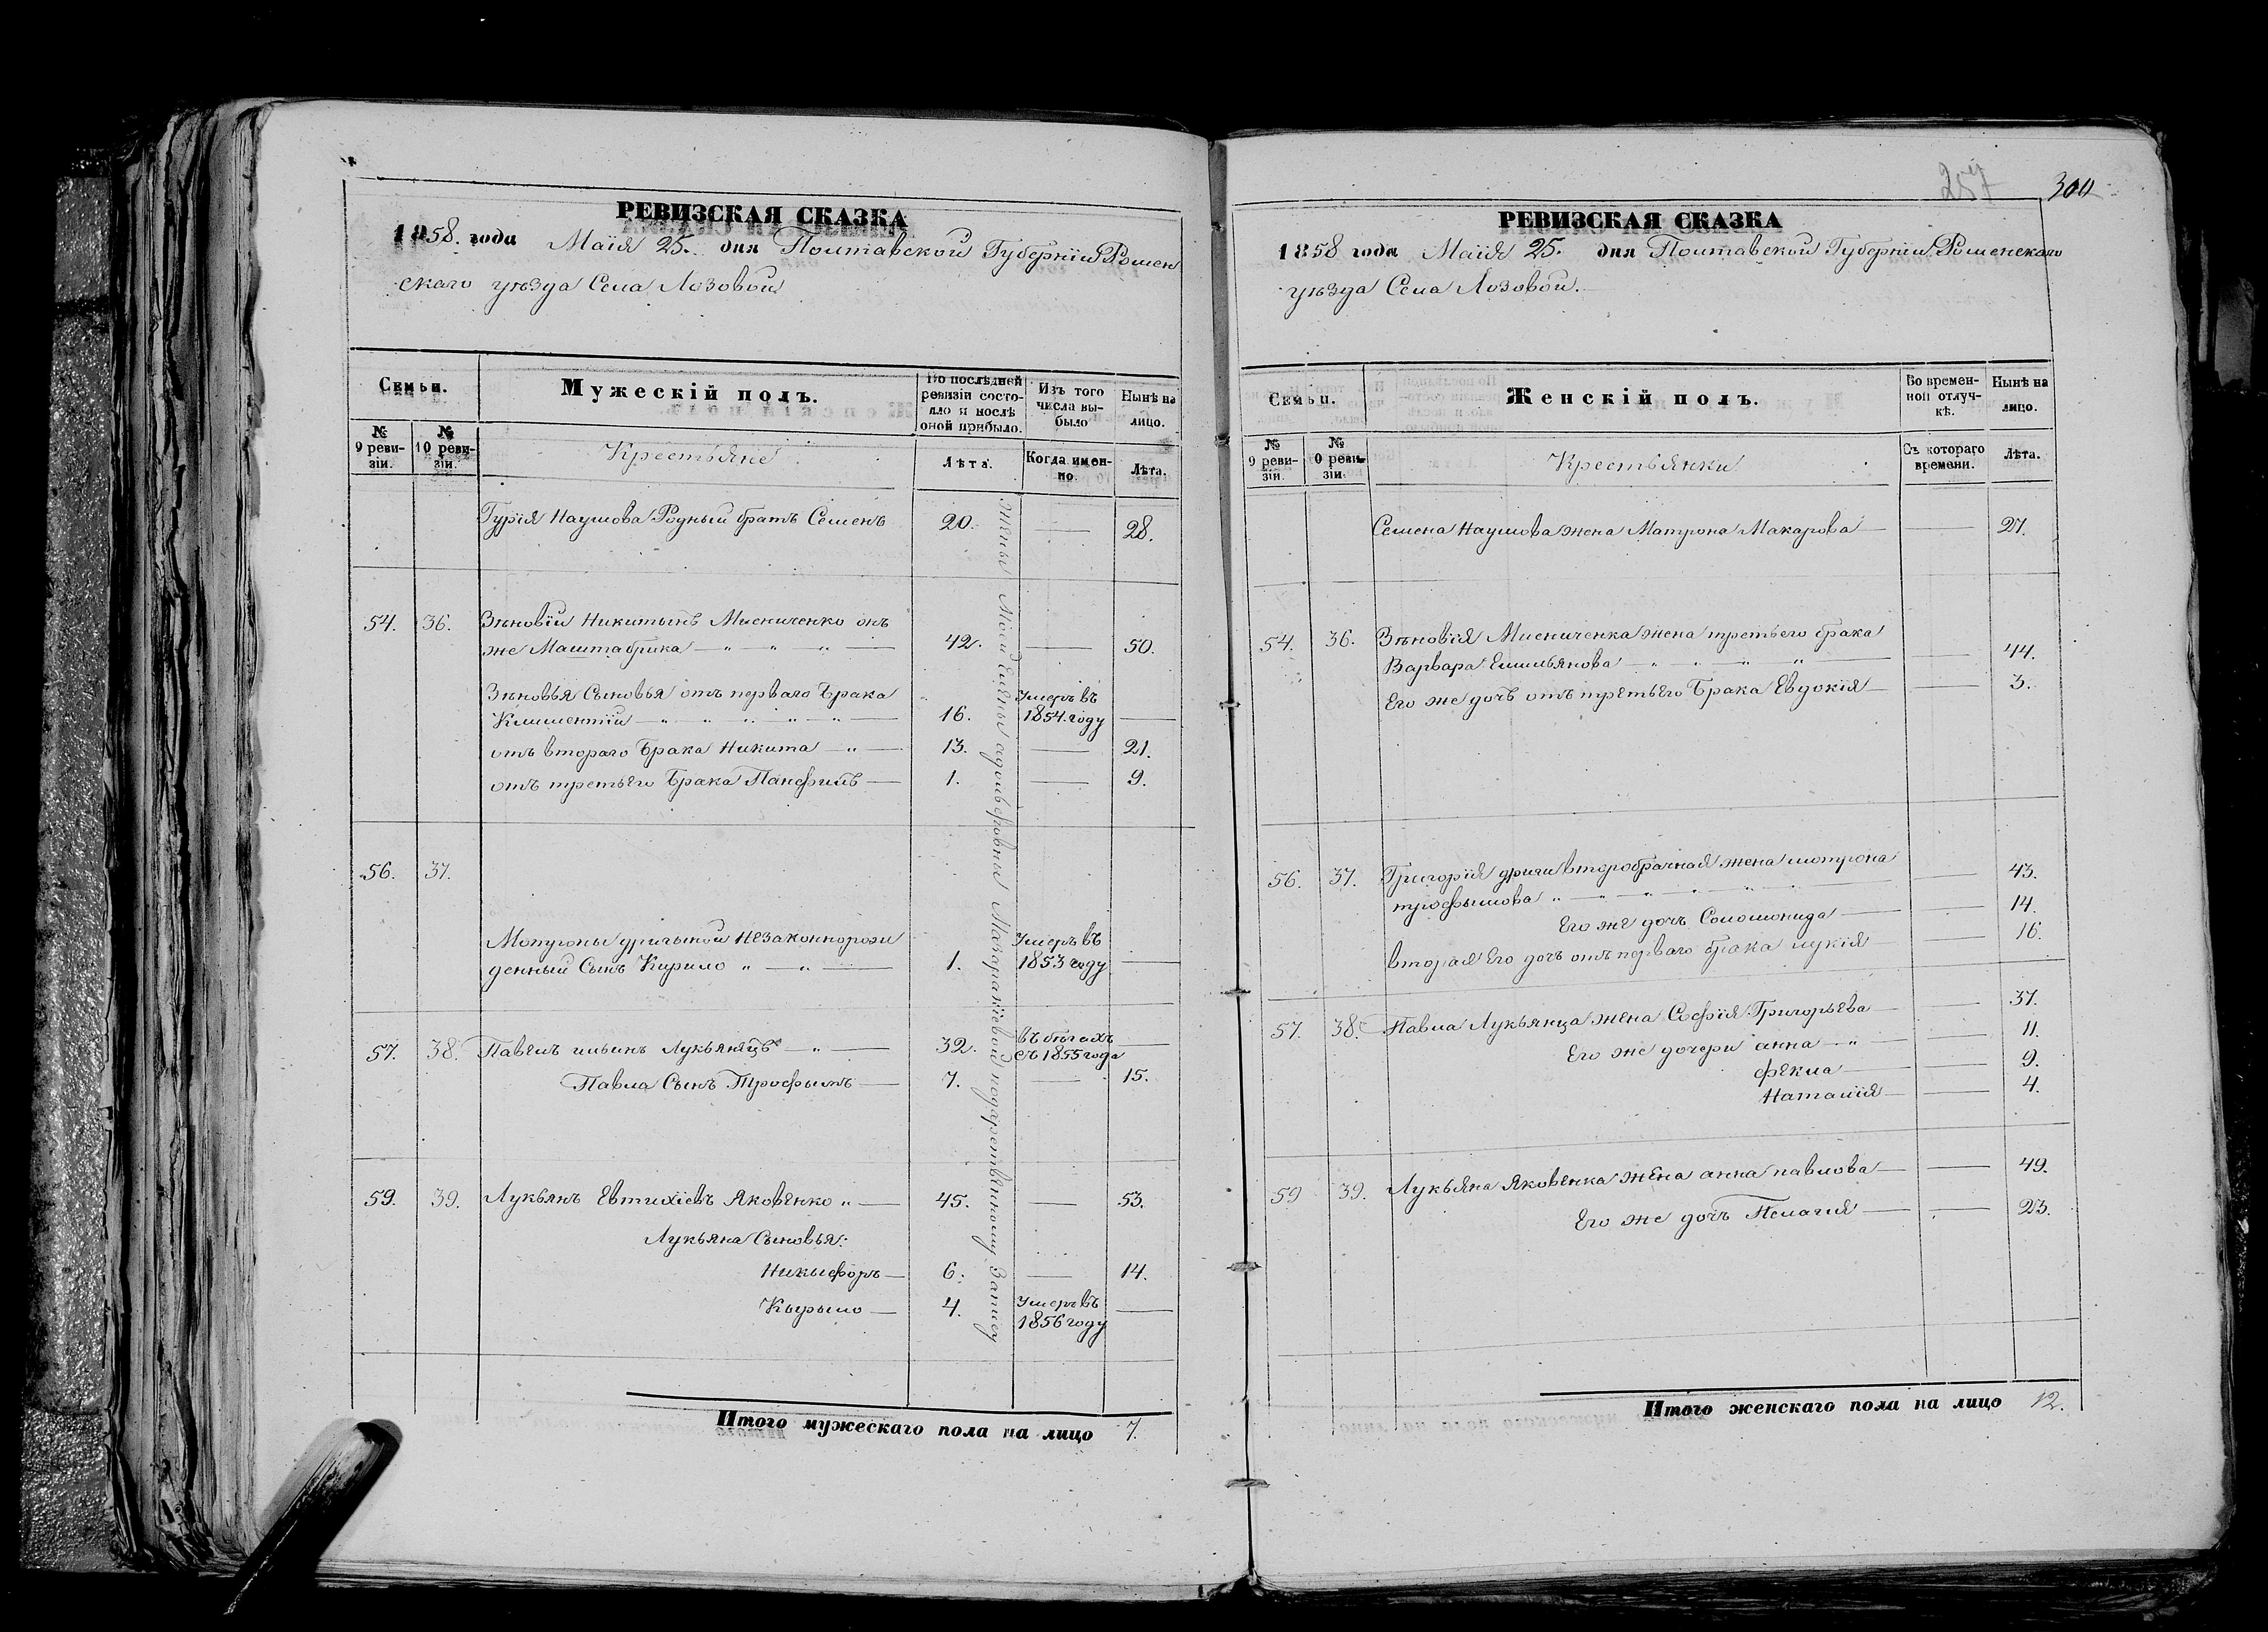 РЕВИЗСКАЯ СКАЗКА
1858. года Маія 25. дня Полтавской Губерніи Ромен
скаго уѣзда Села Лозовой
Семьи.
Мужескій полъ.
Во послѣдней ревизіи состояло и послѣ оной прибыло.
Изъ того числа выбыло
Нынѣ на лицо.
№ 9 ревизіи.
№ 10 ревизіи.
Крестьяне
Лѣта.
Когда именно.
Лѣта.
Гурія Наумова Родный братъ Семенъ 20. 28.
54. 36. Зѣновій Никитынъ Мисниченко онъ
же Маштабрика 42. 50.
Зѣновья Сыновья отъ перваго брака Умеръ въ
Климентій 16. 1854. году
отъ втораго брака Никита 13. 21.
отъ третьего брака Панфилъ 1. 9.
56. 37.
Мотроны незаконнорож Умеръ въ
денный Сынъ Кирило 1. 1853 году
57. 38. Павелъ ильинъ Лукьянецъ 32. въ бѣгахъ съ 1855 года
Павла Сынъ Трофымъ 7. 15.
59. 39. Лукьянъ Евтихіевъ Яковенко 45. 53.
Лукьяна Сыновья:
Никыфоръ 6. 14.
Кырыло 4. Умеръ въ
1856 году
Жены Моей Елены Адольфовны по дарственному Запису
Итого мужескаго пола на лицо 7.
257 300
РЕВИЗСКАЯ СКАЗКА
1858 года Маія 25. дня Полтавской Губерніи Роменскаго
уѣзда Села Лозовой.
Семьи.
Женскій полъ.
Во временной отлучкѣ.
Нынѣ на лицо.
№ 9 ревизіи.
№ 0 ревизіи.
Крестьянки
Съ котораго времени.
Лѣта.
Семена Наумова жена Матрона Макарова 27.
54. 36. Зѣновія Мисниченка жена третьего брака
Варвара Емильянова 44.
Его же дочь отъ третьего брака Евдокія 3.
56. 37. Григорія второбрачная жена мотрона 43.
трофымова
Его же дочь Соломонида 14.
вторая его дочъ отъ перваго брака лукія 16.
57. 38. Павла Лукьянца жена Софія Григорьева 37.
Его же дочери анна 11.
фекла 9.
Наталія 4.
59 39. Лукьяна Яковенка жена анна павлова 49.
Его же дочъ Пелагия 23.
Итого женскаго пола на лицо 12.